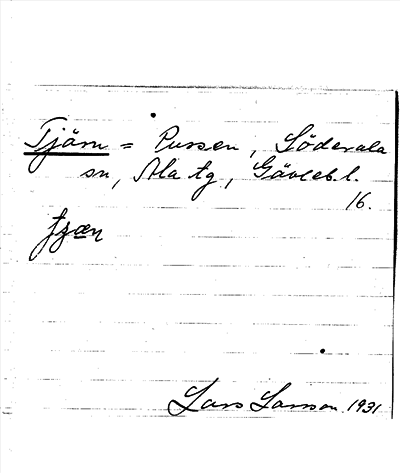 Tjärn = Pussen, Söderala
sn, Ala tg, Gävleb. l.
16.
Lars Larsson 1931